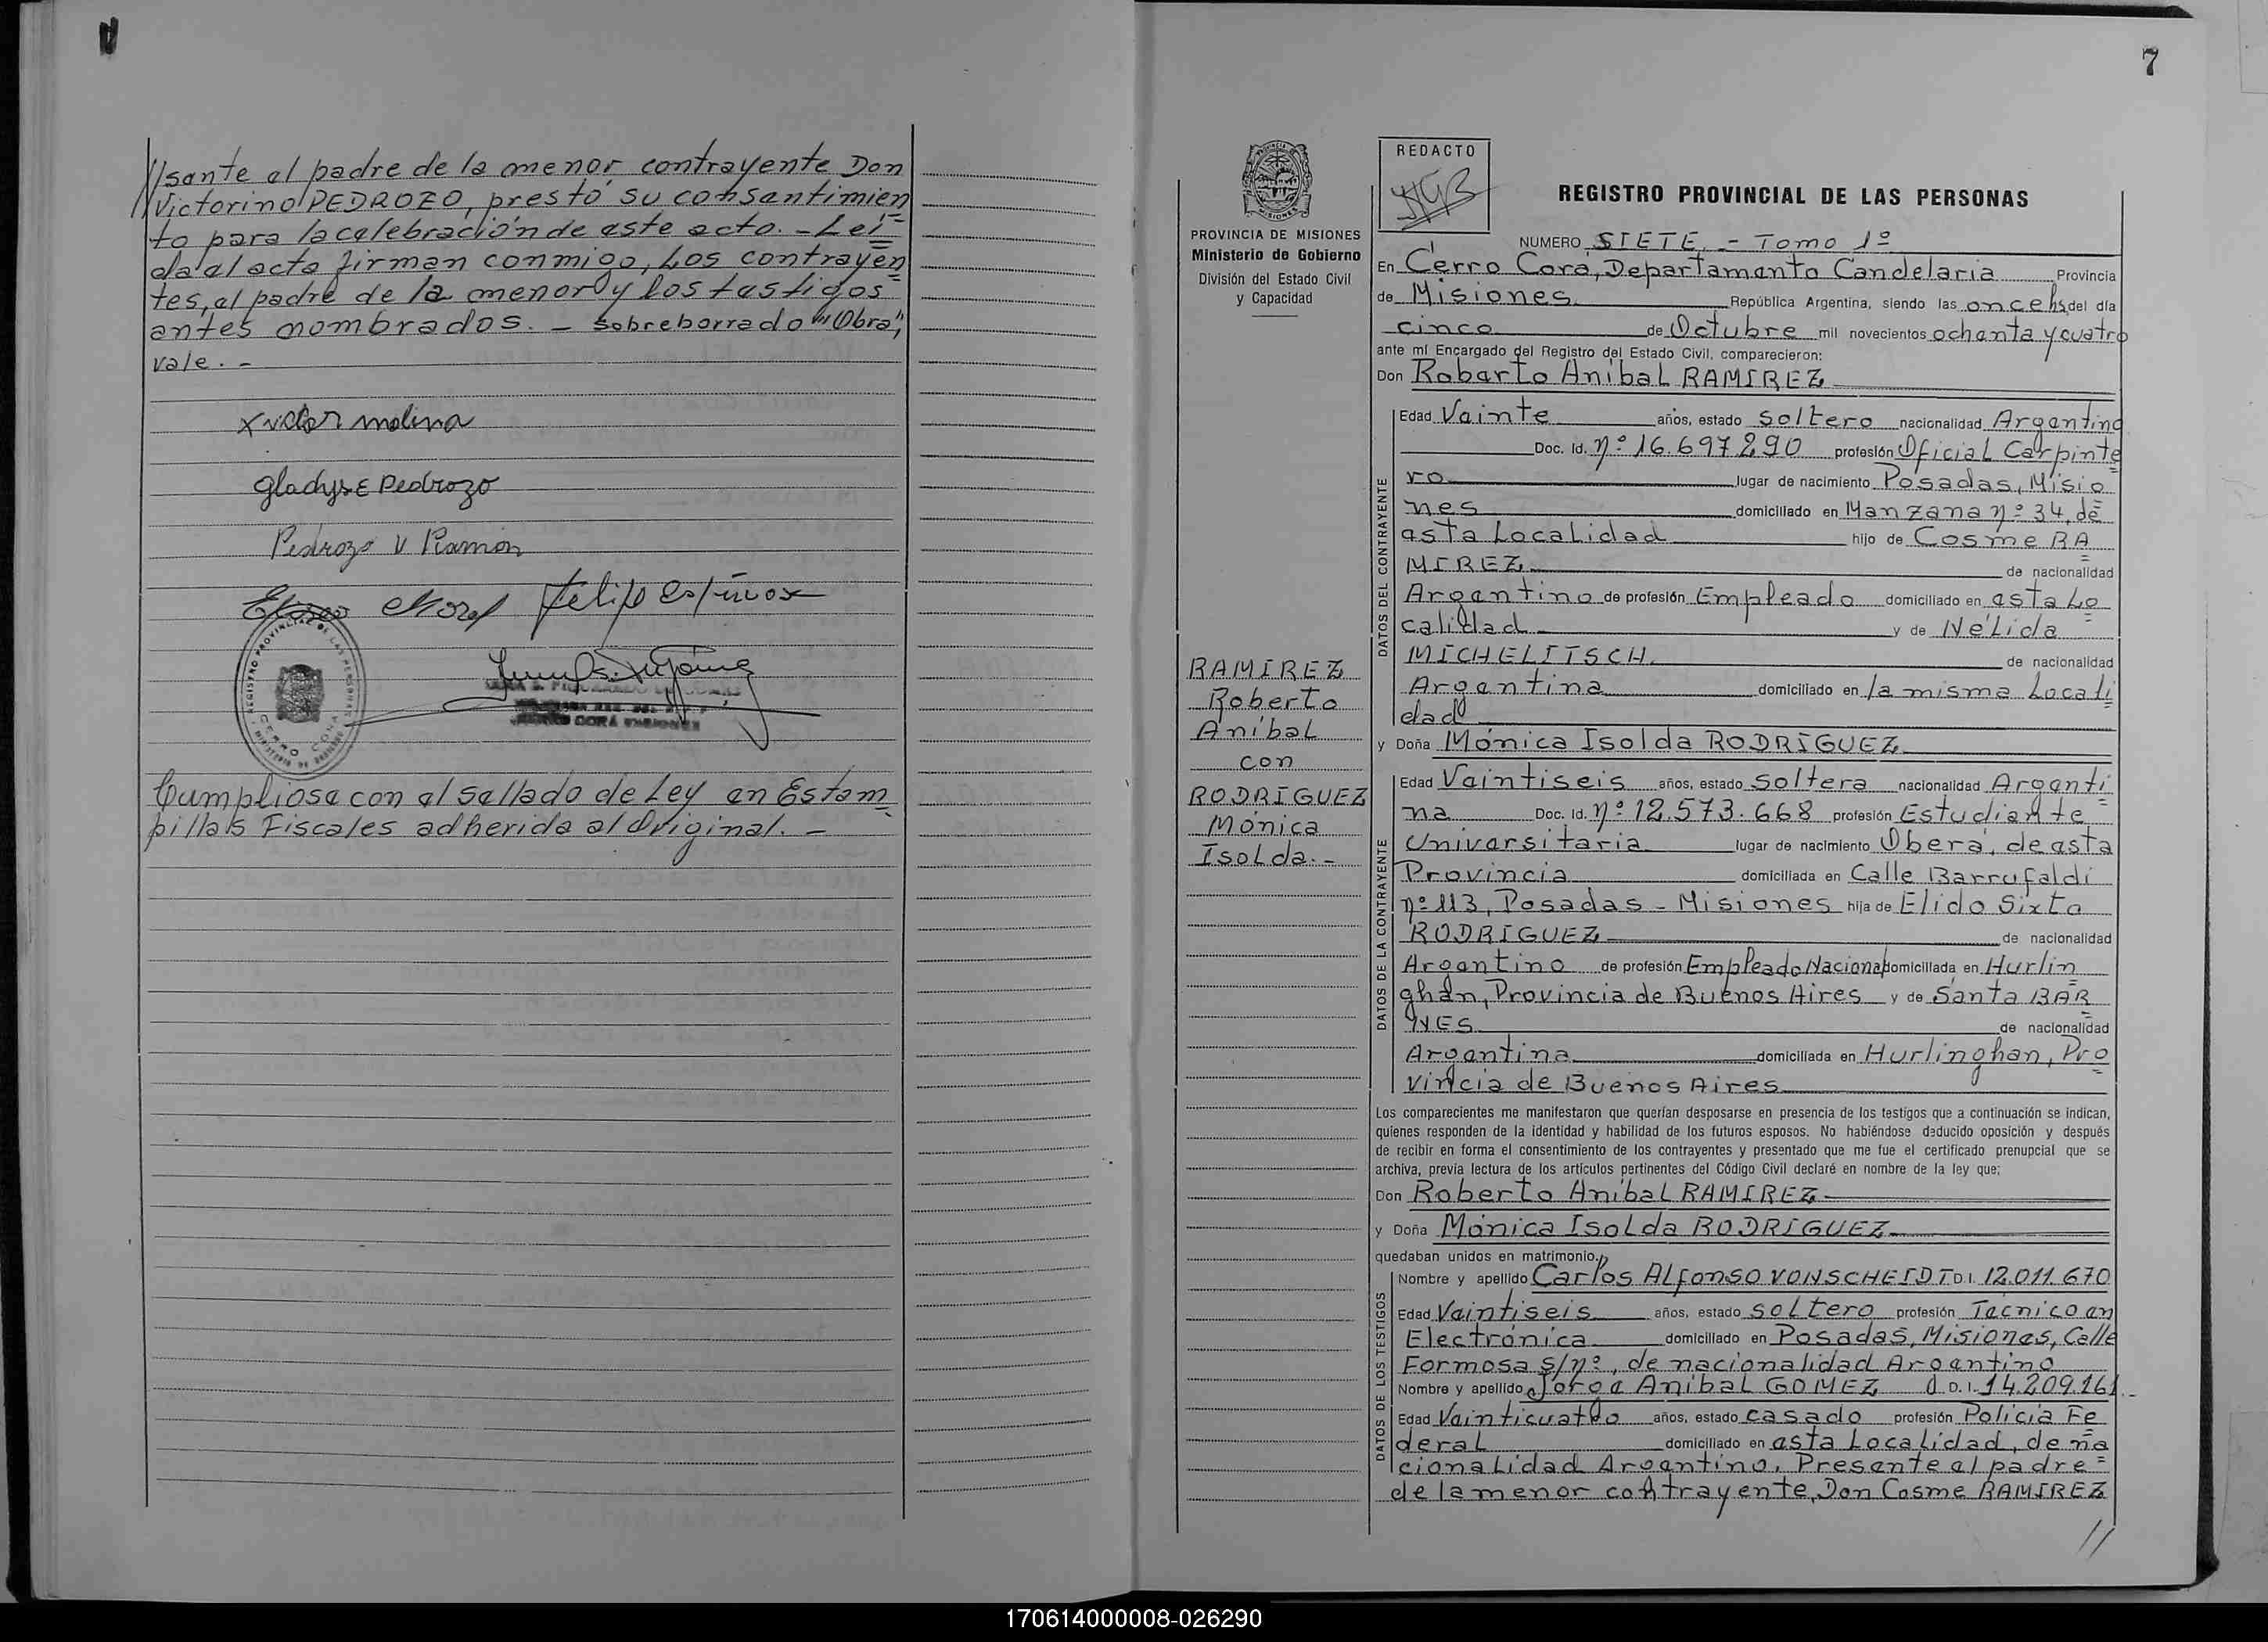 //sente el padre de la menor contrayente Don
Victorino PEDROZO, prestó su consentimien
to para la celebración de este acto. - Leí
da el acta firman conmigo, Los contrayen
tes, el padre de la menor y los testigos
antes nombrados. - sobreborrado "Obra",
vale. -
x victor molina
Gladys E Pedrozo
Pedrozo V Ramón
Felipe
CERRO CORÁ MISIONES
Cumpliose con el Sellado de Ley en Estam
pillals Fiscales adherida al Original. -
7
PROVINCIA DE MISIONES
Ministerio de Gobierno
División del Estado Civil
y Capacidad
RAMIREZ
Roberto
Anibal
con
RODRIGUEZ
Mónica
Isolda. -
REDACTO
REGISTRO PROVINCIAL DE LAS PERSONAS
NUMERO SIETE. - Tomo 1º
En Cerro Corá, Departamento Candelaria Provincia
de Misiones República Argentina, siendo las once hs del día
cinco de Octubre mil novecientos ochenta y cuatro
ante mí Encargado del Registro del Estado Civil, comparecieron:
Don Roberto Anibal RAMIREZ
DATOS DEL CONTRAYENTE
Edad Veinte años, estado Soltero nacionalidad Argentino
Doc. Id. nº 16.697.290 profesión Oficial Carpinte
ro lugar de nacimiento Posadas, Misio
nes domiciliado en Manzana nº 34, de
esta Localidad hijo de Cosme RA
MIREZ de nacionalidad
Argentino de profesión Empleado domiciliado en esta Lo
calidad y de Nélida
MICHELITSCH. de nacionalidad
Argentina domiciliado en la misma Locali
dad
y Doña Mónica Isolda RODRIGUEZ
DATOS DE LA CONTRAYENTE
Edad Veintiseis años, estado Soltera nacionalidad Argenti
na Doc. Id. nº 12.573.668 profesión Estudiante
Universitaria lugar de nacimiento Oberá, de esta
Provincia domiciliada en Calle Barrufaldi
nº 113, Posadas - Misiones hija de Elido Sixto
RODRIGUEZ de nacionalidad
Argentino de profesión Empleado Nacional domiciliada en Hurlin
ghan, Provincia de Buenos Aires y de Santa BAR
NES de nacionalidad
Argentina domiciliada en Hurlinghan, Pro
vincia de Buenos Aires
Los comparecientes me manifestaron que querían desposarse en presencia de los testigos que a continuación se indican,
quienes responden de la identidad y habilidad de los futuros esposos. No habiéndose deducido oposición y después
de recibir en forma el consentimiento de los contrayentes y presentado que me fue el certificado prenupcial que se
archiva, previa lectura de los artículos pertinentes del Código Civil declaré en nombre de la ley que:
Don Roberto Anibal RAMIREZ
y Doña Mónica Isolda RODRIGUEZ
quedaban unidos en matrimonio.
DATOS DE LOS TESTIGOS
Nombre y apellido Carlos Alfonso VONSCHEIDT D.I. 12.011.670
Edad Veintiseis años, estado soltero profesión Tecnico en
Electrónica domiciliado en Posadas, Misiones, Calle
Formosa s/nº, de nacionalidad Argentino
Nombre y apellido Jorge Anibal GOMEZ D.I. 14.209.161.-
Edad Veinticuatro años, estado casado profesión Policia Fe
deral domiciliado en esta Localidad, de na
cionalidad Argentino. Presente el padre
de la menor contrayente, Don Cosme RAMIREZ
//
170614000008-026290